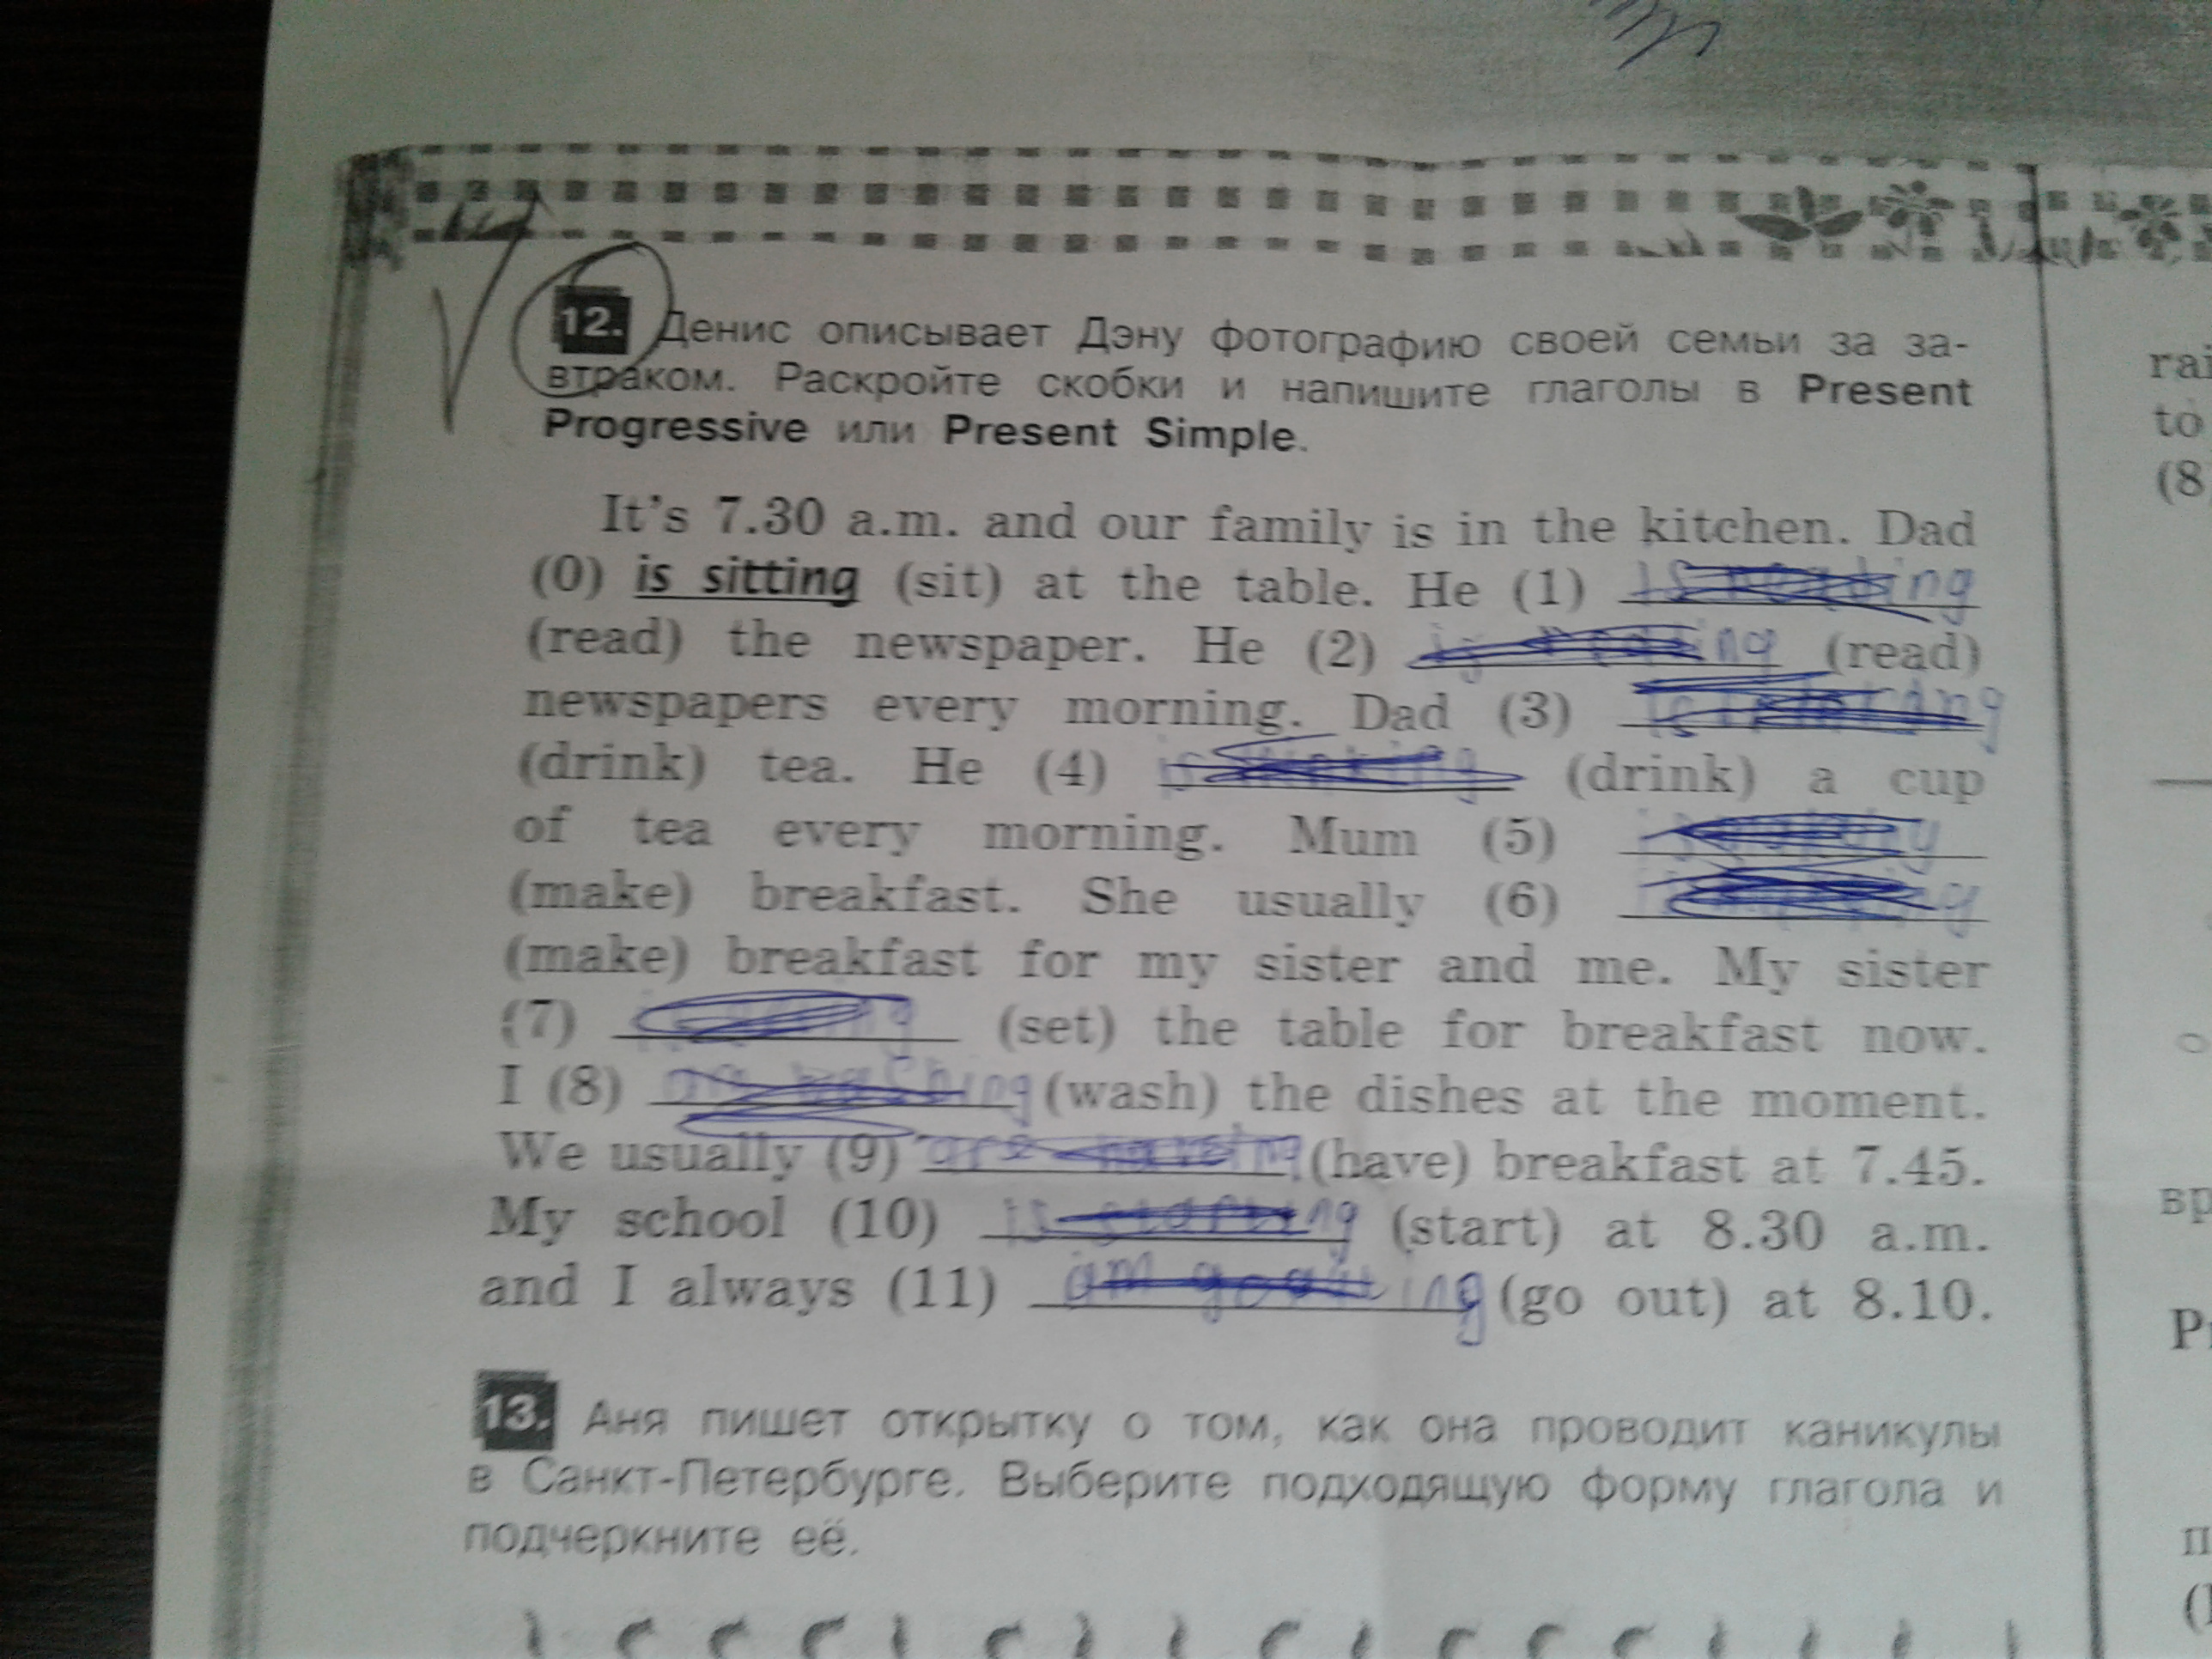 12. Денис описывает Дэну фотографию своей семьи за за-
втраком. Раскройте скобки и напишите глаголы в Present
Progressive или Present Simple.
It's 7.30 a.m. and our family is in the kitchen. Dad
(0) is sitting (sit) at the table. He (1) is reading
(read) the newspaper. He (2) is reading (read)
newspapers every morning. Dad (3)
(drink) tea. He (4) is drinking (drink) a cup
of tea every morning. Mum (5)
(make) breakfast. She usually (6)
(make) breakfast for my sister and me. My sister
(7) (set) the table for breakfast now.
I (8) (wash) the dishes at the moment.
We usually (9) are having (have) breakfast at 7.45.
My school (10) is starting (start) at 8.30 a.m.
and I always (11) am (go out) at 8.10.
13. Аня пишет открытку о том, как она проводит каникулы
в Санкт-Петербурге. Выберите подходящую форму глагола и
подчеркните её.
rai
to
(8
вр